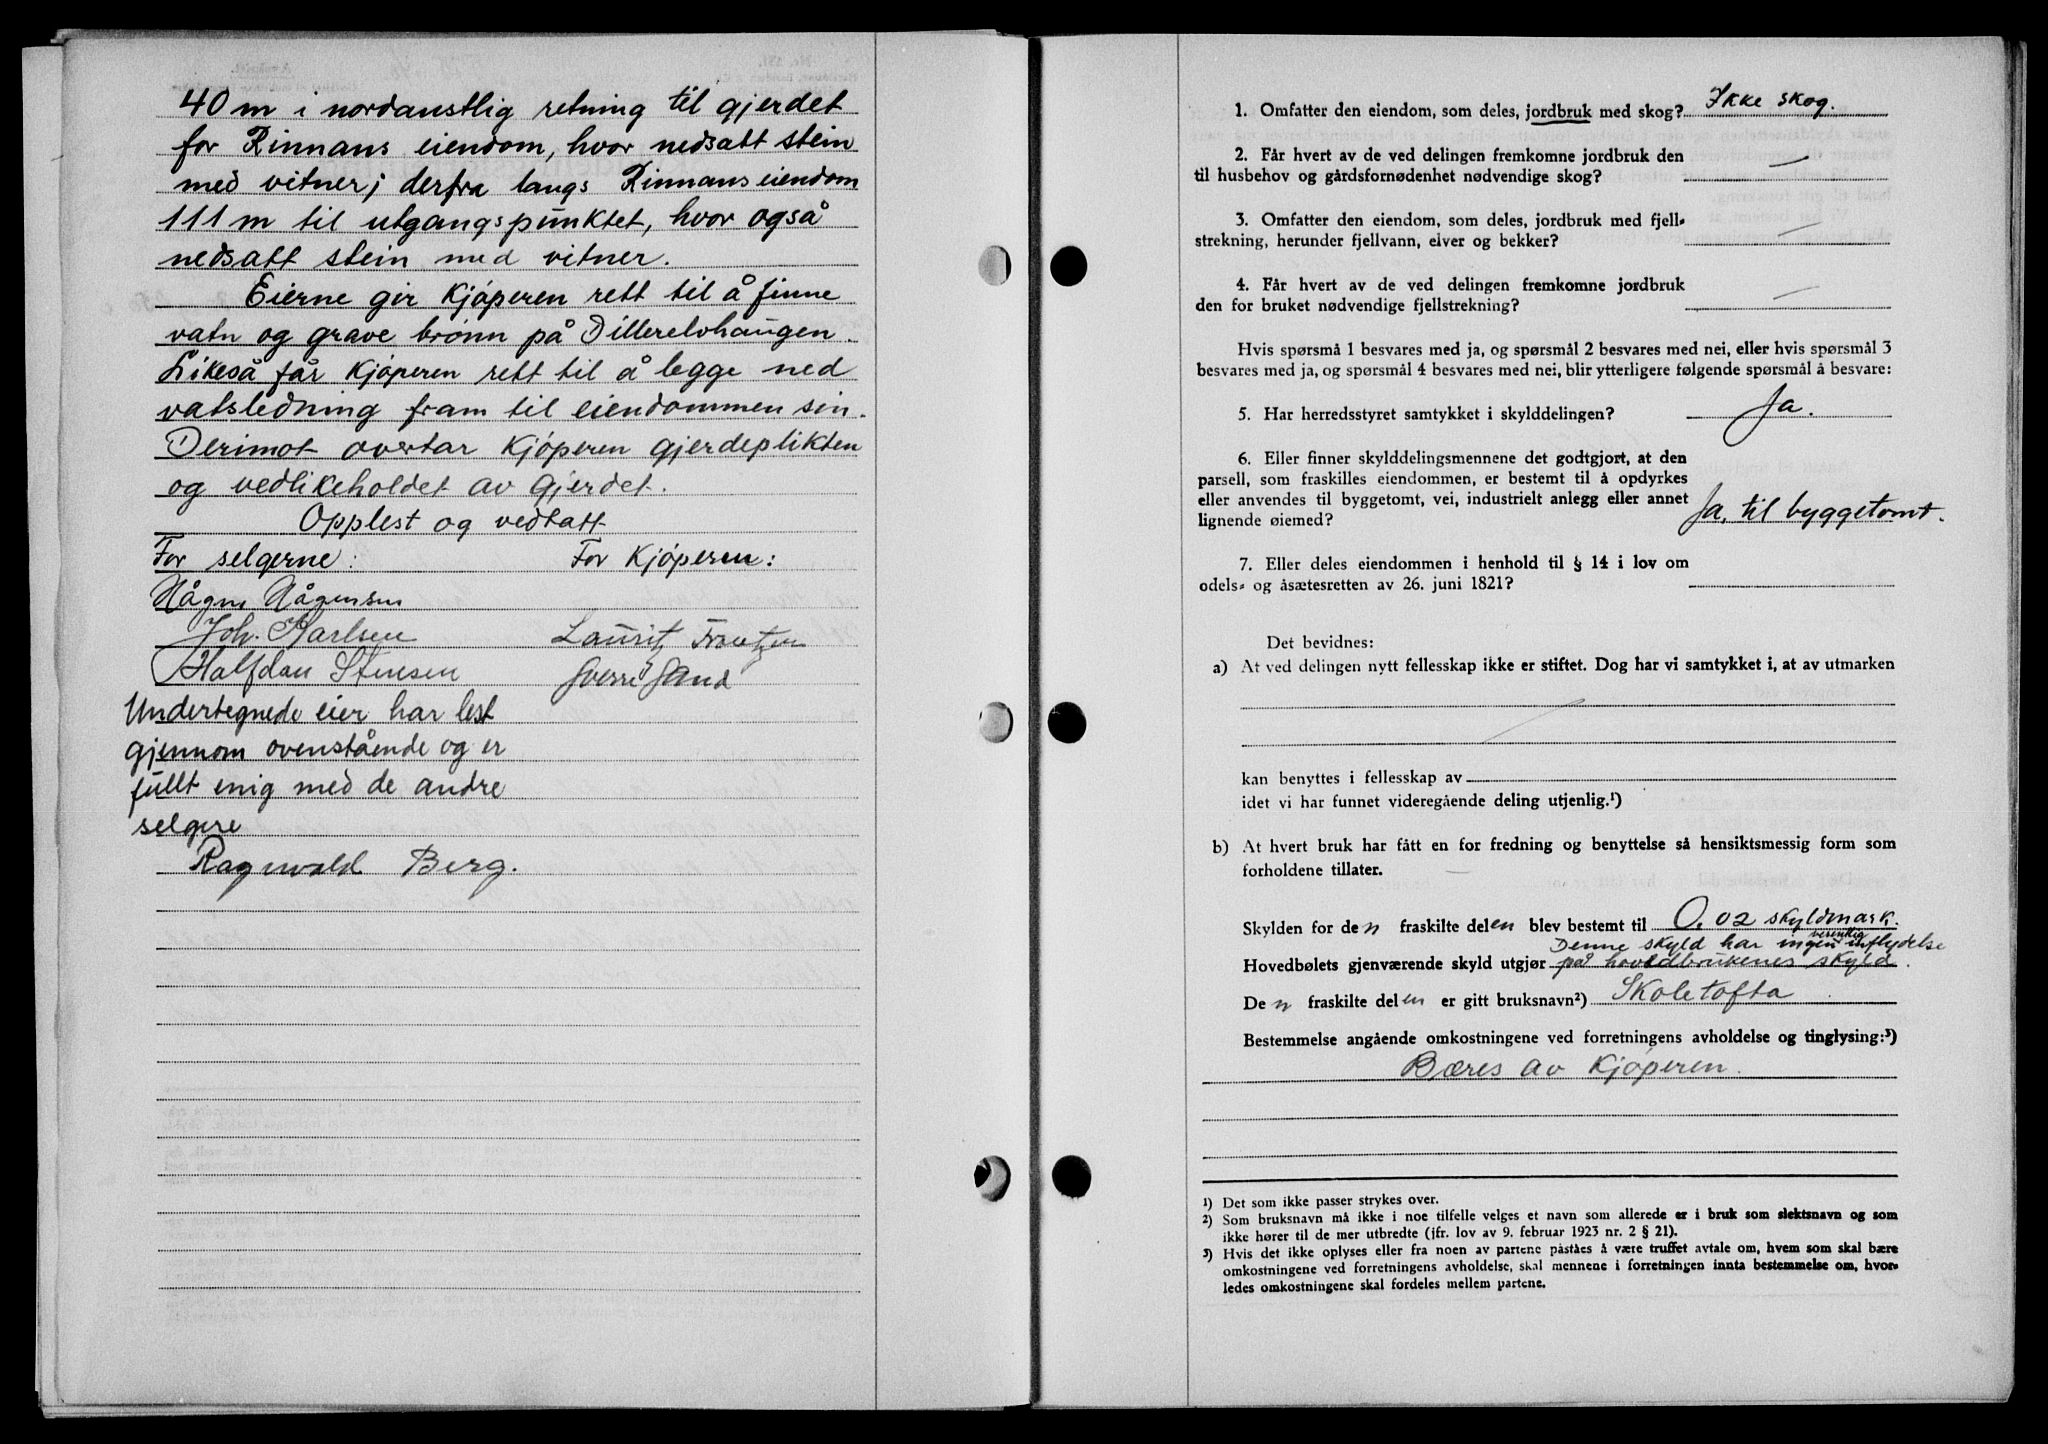 40 m i nordaustlig retning til gjerdet
for Rinnans eiendom, hvor nedsatt stein
med vitner; derfra langs Rinnans eiendom
111 m til utgangspunktet, hvor også
nedsatt stein med vitner.
Eierne gir kjøperen rett til å finne
vatn og grave brønn på Dillerelvhaugen.
Likeså får kjøperen rett til å legge ned
vatsledning fram til eiendommen sin.
Derimot overtar kjøperen gjerdeplikten
og vedlikeholdet av gjerdet.
Opplest og vedtatt
For selgerne: For kjøperen:
Hågen Hågensen
Joh. Karlsen Laurit
Halfdan Stensen Sverre Sand
Undertegnede eier har lest
gjennom ovenstående og er
fullt enig med de andre
selgere
Ragnvald Berg.
1. Omfatter den eiendom, som deles, jordbruk med skog? Ikke skog.
2. Får hvert av de ved delingen fremkomne jordbruk den
til husbehov og gårdsfornødenhet nødvendige skog? —
3. Omfatter den eiendom, som deles, jordbruk med fjell-
strekning, herunder fjellvann, elver og bekker? —
4. Får hvert av de ved delingen fremkomne jordbruk
den for bruket nødvendige fjellstrekning? —
Hvis spørsmå 1 besvares med ja, og spørsmål 2 besvares med nei, eller hvis spørsmål 3
besvares med ja, og spørsmål 4 besvares med nei, blir ytterligere følgende spørsmål å besvare:
5. Har herredsstyret samtykket i skylddelingen? Ja.
6. Eller finner skylddelingsmennene det godtgjort, at den
parsell, som fraskilles eiendommen, er bestemt til å opdyrkes
eller anvendes til byggetomt, vei, industrielt anlegg eller annet
lignende øiemed? Ja, til byggetomt.
7. Eller deles eiendommen i henhold til § 14 i lov om
odels- og åsætesretten av 26. juni 1821?
Det bevidnes:
a) At ved delingen nytt fellesskap ikke er stiftet. Dog har vi samtykket i, at av utmarken
kan benyttes i fellesskap av
idet vi har funnet videregående deling utjenlig.¹)
b) At hvert bruk har fått en for fredning og benyttelse så hensiktsmessig form som
forholdene tillater.
Skylden for den fraskilte delen blev bestemt til 0.02 skyldmark.
Denne skyld har ingen vesentlig inflydelse
Hovedbølets gjenværende skyld utgjør på hovedbrukenes skyld.
Den fraskilte delen er gitt bruksnavn²) Skoletofta
Bestemmelse angående omkostningene ved forretningens avholdelse og tinglysing:³)
Bæres av kjøperen.
¹) Det som ikke passer strykes over.
²) Som bruksnavn må ikke i noe tilfelle velges et navn som allerede er i bruk som slektsnavn og som
ikke hører til de mer utbredte (jfr. lov av 9. februar 1923 nr. 2 § 21).
³) Hvis det ikke oplyses eller fra noen av partene påståes å være truffet avtale om, hvem som skal bære
omkostningene ved forretningens avholdelse, skal mennene i forretningen innta bestemmelse om, hvor-
ledes omkostningene skal fordeles mellem partene.